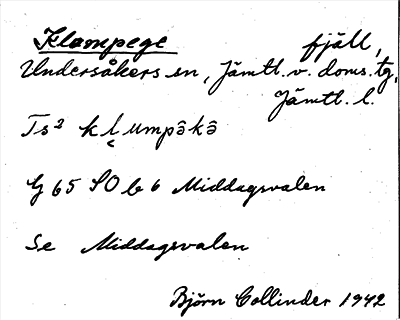 Klampege fjäll,
Undersåkers sn, Jämtl. v. doms. tg,
Jämtl. l.
Ts² kl̥umpə̑kə̑
G 65 SO b 6 Middagsvalen
Se Middagsvalen
Björn Collinder 1942